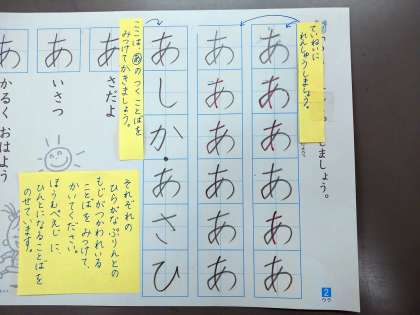 ていねいに
れんしゅうしましょう。
しましょう。
あ
あ
あ
あ
あ
あ
あ
あ
あ
あ
あ
あ
ここは、あのつくことばを
みつけてかきましょう。
あ
し
か・
あ
さ
ひ
あ
さだよ
あ
いさつ
あ
かるく おはよう
それぞれの
ひらがなぷりんとの
もじがつかわれいる
ことばを みつけて、
かいてください。
ほうむぺえじ に、
ひんとになることばを
のせています。
2
ウラ